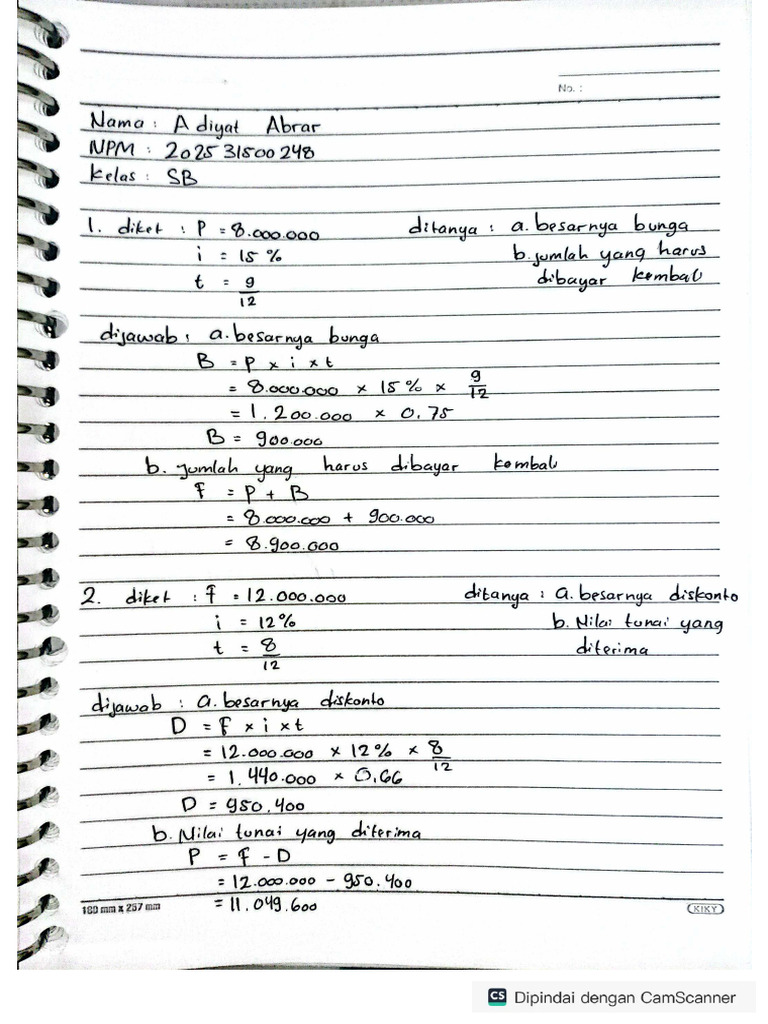 No. :
Nama : Adiyat Abrar
NPM : 202531500248
Kelas : SB
1. diket : P = 8.000.000 ditanya : a. besarnya bunga
i = 15 % b. jumlah yang harus
t = 9/12 dibayar kembali
dijawab : a. besarnya bunga
B = P x i x t
= 8.000.000 x 15 % x 9/12
= 1.200.000 x 0.75
B = 900.000
b. Jumlah yang harus dibayar kembali
F = P + B
= 8.000.000 + 900.000
= 8.900.000
2. diket : F = 12.000.000 ditanya : a. besarnya diskonto
i = 12% b. Nilai tunai yang
t = 8/12 diterima
dijawab : a. besarnya diskonto
D = F x i x t
= 12.000.000 x 12 % x 8/12
= 1.440.000 x 0,66
D = 950.400
b. Nilai tunai yang diterima
P = F - D
= 12.000.000 - 950.400
= 11.049.600
180 mm x 257 mm KIKY
CS Dipindai dengan CamScanner